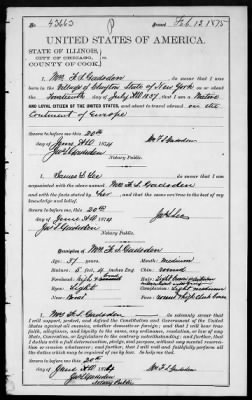 43663 Issued Feb. 12 1875
UNITED STATES OF AMERICA.
STATE OF ILLINOIS,
CITY OF CHICAGO, ss.
COUNTY OF COOK,
I, Mrs F. S. Gadsden, do swear that I was
born in the Village of Clayton State of New York on
the Fourteenth day of July AD 1837; that I am a Native
AND LOYAL CITIZEN OF THE UNITED STATES, and about to travel abroad on the
Continent of Europe
Sworn to before me this 20th
day of June AD 1874
Jas S Gadsden
Notary Public.
Mrs F S Gadsden
I, James S. Lee, do swear that I am
acquainted with the above named Mrs F. S. Gadsden
and with the facts stated by her, and that the same are true to the best of my
knowledge and belief.
Sworn to before me this 20th
day of June AD 1874
Jas S Gadsden
Notary Public.
Jas S Lee
Description of Mrs F. S. Gadsden
Age: 37 years.
Stature: 5 feet 4 inches Eng.
Forehead: high &
Eyes: Light
Nose:
Mouth: medium
Chin: round
Hair: Light
Complexion: Light medium
Face:
I, Mrs F S Gadsden, do solemnly swear that
I will support, protect, and defend the Constitution and Government of the
United States against all enemies, whether domestic or foreign; and that I will bear true
faith, allegiance, and loyalty to the same, any ordinance, resolution, or law of any State,
Convention, or Legislature to the contrary notwithstanding; and further, that I
do this with a full determination, pledge, and purpose, without any mental reservation
or evasion whatsoever; and further, that I will well and faithfully perform all
the duties which may be required of me by law. So help me God.
Sworn to before me this 20th
day of June AD 1874
Jas S Gadsden
Notary Public
Mrs F S Gadsden